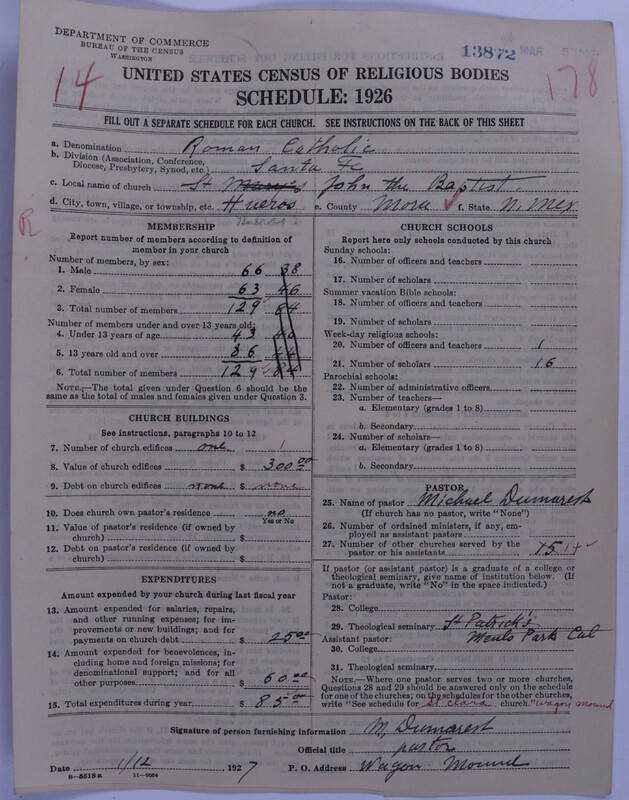 DEPARTMENT OF COMMERCE
BUREAU OF THE CENSUS
WASHINGTON
13872 MAR
14
178
UNITED STATES CENSUS OF RELIGIOUS BODIES
SCHEDULE: 1926
FILL OUT A SEPARATE SCHEDULE FOR EACH CHURCH. SEE INSTRUCTIONS ON THE BACK OF THIS SHEET
a. Denomination Roman Catholic
b. Division (Association, Conference, Diocese, Presbytery, Synod, etc.) Santa Fe
c. Local name of church St Mary's John the Baptist
d. City, town, village, or township, etc. Hueros e. County Mora f. State N. Mex
R
MEMBERSHIP
Report number of members according to definition of
member in your church
Number of members, by sex:
1. Male 66 38
2. Female 63 46
3. Total number of members 129 84
Number of members under and over 13 years old:
4. Under 13 years of age 43 40
5. 13 years old and over 86 44
6. Total number of members 129 84
NOTE.—The total given under Question 6 should be
same as the total of males and females given under Question 3.
CHURCH BUILDINGS
See instructions, paragraphs 10 to 12
7. Number of church edifices one 1
8. Value of church edifices $ 300.00
9. Debt on church edifices none $ none
10. Does church own pastor's residence? no
Yes or No
11. Value of pastor's residence (if owned by
church) $
12. Debt on pastor's residence (if owned by
church) $
EXPENDITURES
Amount expended by your church during last fiscal year
13. Amount expended for salaries, repairs,
and other running expenses; for im-
provements or new buildings; and for
payments on church debt $ 25.00
14. Amount expended for benevolences, in-
cluding home and foreign missions; for
denominational support; and for all
other purposes $ 60.00
15. Total expenditures during year $ 85.00
CHURCH SCHOOLS
Report here only schools conducted by this church
Sunday schools:
16. Number of officers and teachers
17. Number of scholars
Summer vacation Bible schools:
18. Number of officers and teachers
19. Number of scholars
Week-day religious schools:
20. Number of officers and teachers 1
21. Number of scholars 16
Parochial schools:
22. Number of administrative officers
23. Number of teachers—
a. Elementary (grades 1 to 8)
b. Secondary
24. Number of scholars—
a. Elementary (grades 1 to 8)
b. Secondary
PASTOR
25. Name of pastor Michael Dumarest
(If church has no pastor, write "None")
26. Number of ordained ministers, if any, em-
ployed as assistant pastors
27. Number of other churches served by the
pastor or his assistants 15 14
If pastor (or assistant pastor) is a graduate of a college or
theological seminary, give name of institution below. (If
not a graduate, write "No" in the space indicated.)
Pastor:
28. College
29. Theological seminary St Patrick's
Assistant pastor: Menlo Park Cal
30. College
31. Theological seminary
NOTE.—Where one pastor serves two or more churches,
Questions 28 and 29 should be answered only on the schedule
for one of the churches; on the schedules for the other churches,
write "See schedule for St Clara church." Wagon Mound
Signature of person furnishing information M, Dumarest
Official title pastor
Date 1/12 1927 P. O. Address Wagon Mound
8-5518 a 11-9084